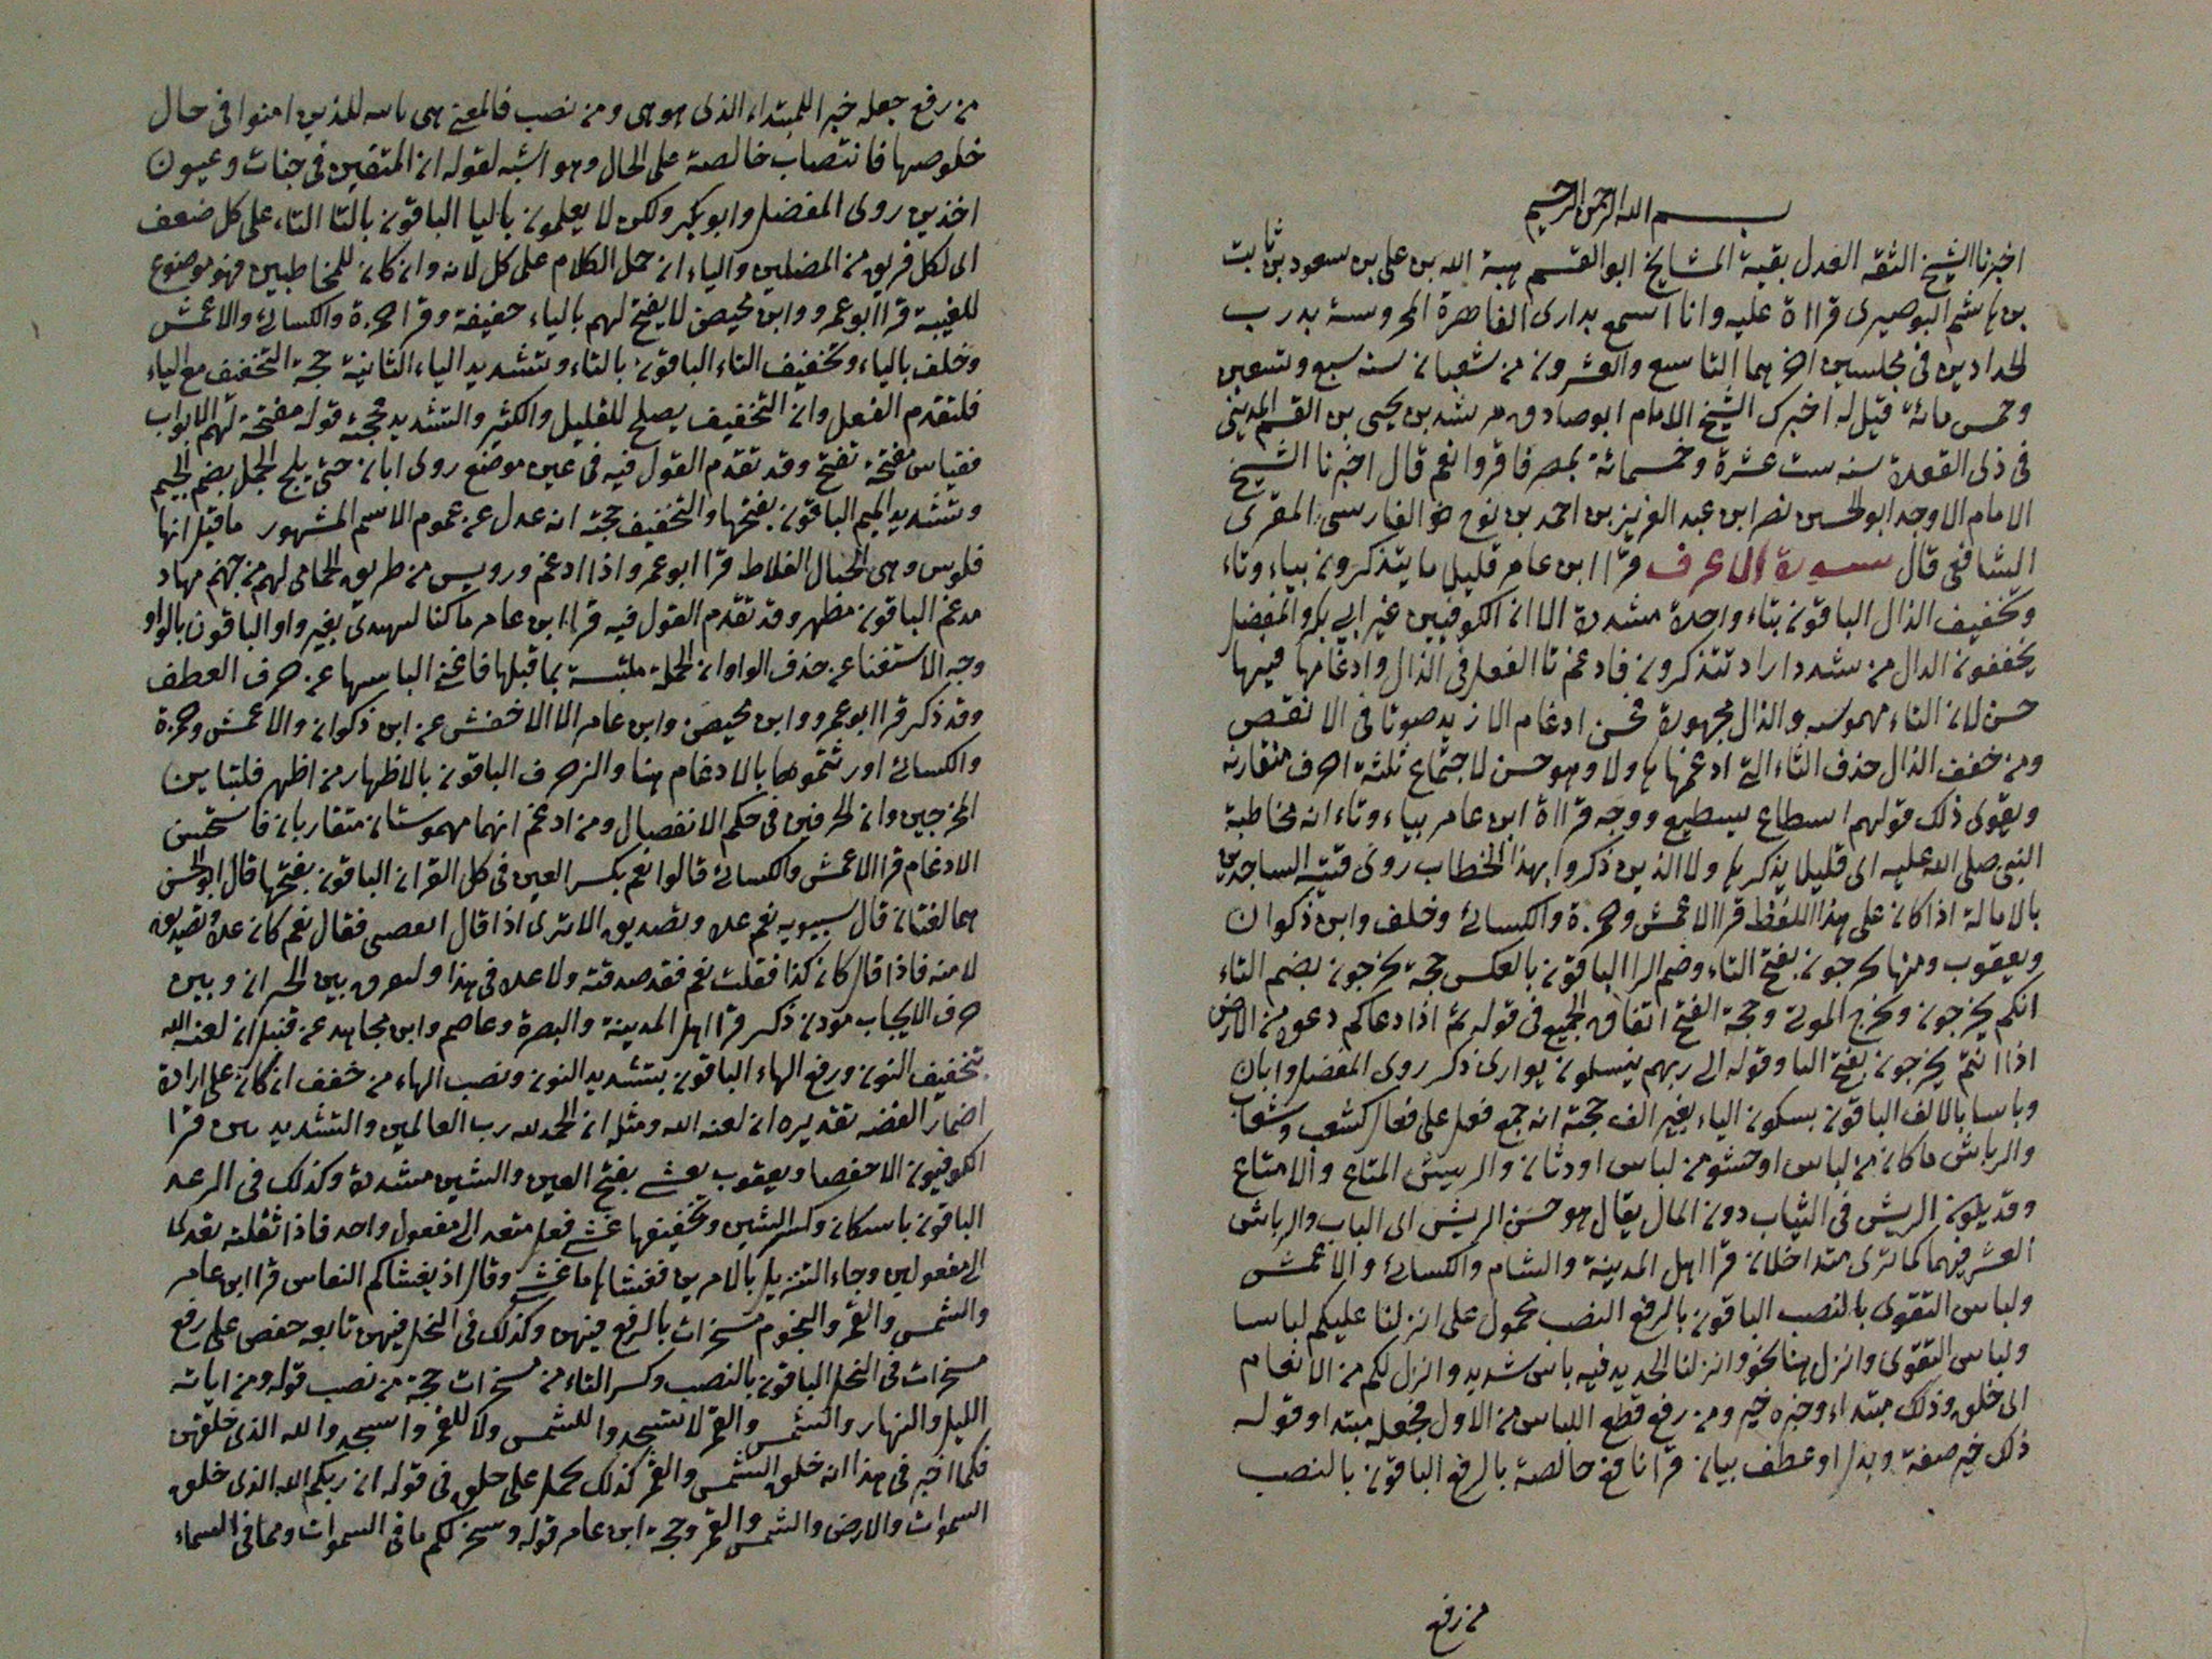 بسم الله الرحمن الرحيم
اخبرنا الشيخ الثقه العدل بقية المشايخ ابو القسم هبة الله بن على بن سعود بن ثابت
بن هاشم البوصيرى قرااة عليه وانا اسمع بدارى القاهرة المحروسة بدرب
الحدادين فى مجلسين اخرهما التاسع والعشرون من شعبان سنه سبع وتسعين
وخمس مائة قيل له اخبرك الشيخ الامام ابو صادق مرشد بن يحيى بن القسم المدينى
فى ذى القعدة سنه ست عشرة وخمسمائة بمصر فاقروا نعم قال اخبرنا الشيخ
الامام الاوحد ابو الحسين نصر ابن عبد العزيز بن احمد بن نوح الفارسى المقرى
الشافعى قال سورة الاعرف قرا ابن عامر قليل ما يتذكرون بياء وتاء
وتخفيف الذال الباقون بتاء واحدة مشددة الا ان الكوفيين غير ابى بكر والمفضل
يخففون الدال من شدد اراد تتذكرون فادغم تا الفعل فى الذال وادغامها فيها
حسن لان التاء مهموسه والذال مجهورة فحسن ادغام الازيد صوتا فى الانقص
ومن خفف الذال حذف التاء التى ادغمها هاولا وهو حسن لاجتماع ثلثة احرف متقاربه
ويقوى ذلك قولهم اسطاع يسطيع ووجه قرااة ابن عامر بياء وتاء انه مخاطبة
النبى صلى الله عليه اى قليلا يذكر هاولا الذين ذكروا بهذا الخطاب روى قتيبه الساجدين
بالامالة اذا كان على هذا اللفظ قرا الاعمش وحمزة والكسائى وخلف وابن ذكوان
ويعقوب ومنها تخرجون بفتح التاء وضم الرا الباقون بالعكس حجة تخرجون بضم التاء
انكم يخرجون ونخرج الموتى وحجة الفتح اتفاق الجميع فى قوله ثم اذا دعاكم دعوة من الارض
اذا انتم تخرجون بفتح التا وقوله الى ربهم ينسلون يوارى ذكر روى المفضل وابان
ورياشا بالالف الباقون بسكون الياء بغير الف حجته انه جمع فعل على فعال كشعب وشعاب
والرياش ما كان من لباس او حشو من لباس او دثار والريش المتاع والامتاع
وقد يكون الريش فى الثياب دون المال يقال هو حسن الريش اى الثياب والرياش
العشر فيهما كما ترى متداخلان قرا اهل المدينة والشام والكسائى والاعمش
ولباس التقوى بالنصب الباقون بالرفع النصب محمول على انزلنا عليكم لباسا
ولباس التقوى وانزل هنا نحو وانزلنا الحديد فيه باس شديد وانزل لكم من الانعام
اى خلق وذلك مبتداء وخبره خير ومن رفع قطع اللباس من الاول فجعله مبتدا وقوله
ذلك خير صفة وبدل او عطف بيان قرا نافع خالصة بالرفع الباقون بالنصب
من رفع
من رفع جعله خبرا للمبتداء الذى هو هى ومن نصب فالمعنى هى ثابته للذين امنوا فى حال
خلوصها فانتصاب خالصة على الحال وهو اشبه لقوله ان المتقين فى جنات وعيون
اخذين روى المفضل وابو بكر ولكن لا يعلمون باليا الباقون بالتا التاء على كل ضعف
اى لكل فريق من المضلين والياء ان حمل الكلام على كل لانه وان كان للمخاطبين فهو موضوع
للغيبة قرا ابو عمرو وابن محيصن لا يفتح لهم بالياء خفيفة وقرا حمزة والكسائى والاعمش
وخلف بالياء وتخفيف التاء الباقون بالتاء وتشديد الياء الثانية حجة التخفيف مع الياء
فلتقدم الفعل وان التخفيف يصلح للقليل والكثير والتشديد فحجته قوله مفتحة لهم الابواب
فقياس مفتحة تفتح وقد تقدم القول فيه فى غير موضع روى ابان حتى يلج الجمل بضم الجيم
وتشديد الميم الباقون بفتحها والتخفيف حجته انه عدل عن عموم الاسم المشهور ما قيل انها
قلوس وهى الحبال الغلاظ قرا ابو عمرو اذا ادغم ورويس من طريق الحمامى لهم من جهنم مهاد
مدغم الباقون مظهر وقد تقدم القول فيه قرا ابن عامر ما كنا لنهتدى بغير واو الباقون بالواو
وجه الاستغنا عن حذف الواو ان الجملة ملتبسة بما قبلها فاغنى التباسها عن حرف العطف
وقد ذكر قرا ابو عمرو وابن محيصن وابن عامر الا الاخفش عن ابن ذكوان والاعمش وحمزة
والكسائى اورثتموها بالادغام هنا والزخرف الباقون بالاظهار من اظهر فلتباين
المخرجين وان الحرفين فى حكم الانفصال ومن ادغم انهما مهموستان متقاربان فاستحسن
الادغام قرا الاعمش والكسائى قالوا نعم بكسر العين فى كل القران الباقون بفتحها قال ابو الحسن
هما لغتان قال سيبويه نعم عدة وتصديق الا ترى اذا قال اتعصى فقال نعم كان عدة وتصديق
لامنه فاذا قال كان كذا فقلت نعم فقد صدقته ولا عدة فى هذا
حرف الايجاب مؤذن ذكر قرا اهل المدينة والبصرة وعاصم وابن مجاهد عن قنبل ان لعنه الله
بتخفيف النون ورفع الهاء الباقون بتشديد النون ونصب الهاء من خفف ان كان على ارادة
اضمار القصه تقديره ان لعنه الله ومثله ان الحمد لله رب العالمين والتشديد بين قرا
الكوفيون الا حفصا ويعقوب يغشى بفتح الغين والشين مشددة وكذلك فى الرعد
الباقون باسكان وكسر الشين وتخفيفها غشى فعل متعد الى مفعول واحد فاذا ثقلته تعدى
الى مفعولين وجاء التنزيل بالامرين فغشاها ما غشى وقال اذ يغشاكم النعاس قرا ابن عامر
والشمس والقمر والنجوم مسخرات بالرفع فيهن وكذلك فى النحل فيهن تابعه حفص على رفع
مسخرات فى النحل الباقون بالنصب وكسر التاء من مسخرات حجة من نصب قوله ومن اياته
الليل والنهار والشمس والقمر لا تسجدوا للشمس ولا للقمر واسجدوا لله الذى خلقهن
فكما اخبر فى هذا انه خلق الشمس والقمر كذلك يحمل على خلق فى قوله ان ربكم الله الذى خلق
السموات والارض والشمس والقمر وحجة ابن عامر قوله وسخر لكم ما فى السموات ومما فى السماء